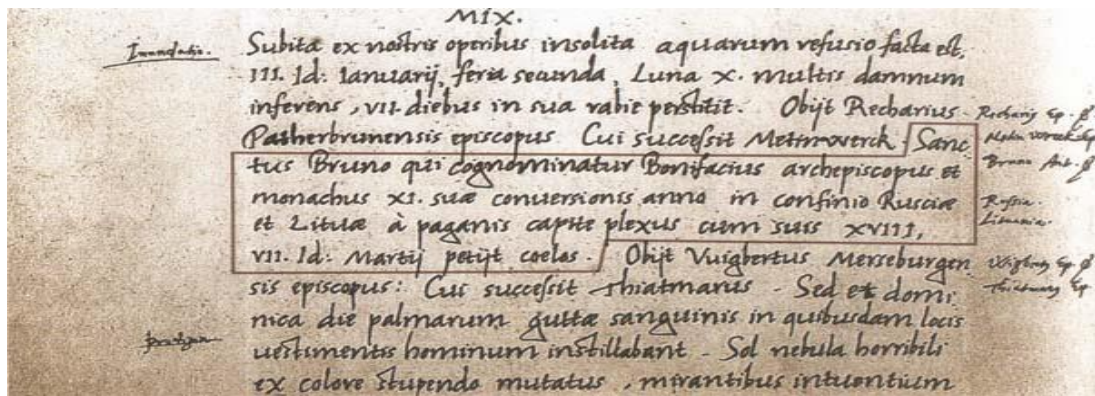 MIX.
Inundatio.
Subita ex nostris operibus insolita aquarum refusio facta est,
III. Id: Ianuarij, feria secunda, Luna X. multis damnum
inferens, VII. diebus in sua rabie perstitit. Obijt Recharius
Patherbrunensis episcopus Cui successit Metinwerck. Sanc
tus Bruno qui cognominatur Bonifacius archepiscopus et
monachus XI. suæ conversionis anno in confinio Rusciæ
et Lituæ à paganis capite plexus cum suis XVIII,
VII. Id: Martij petijt coelos. Obijt Vuigbertus Merseburgen
sis episcopus: Cui successit Thiatmarus. Sed et domi
nica die palmarum guttæ sanguinis in quibusdam locis
vestimentis hominum instillabant. Sol nebula horribili
ex colore stupendo mutatus, mirantibus intuentium
Recharij Ep.
Bruno
Russia.
Lituania.
Ep.
Thiatmarq Ep